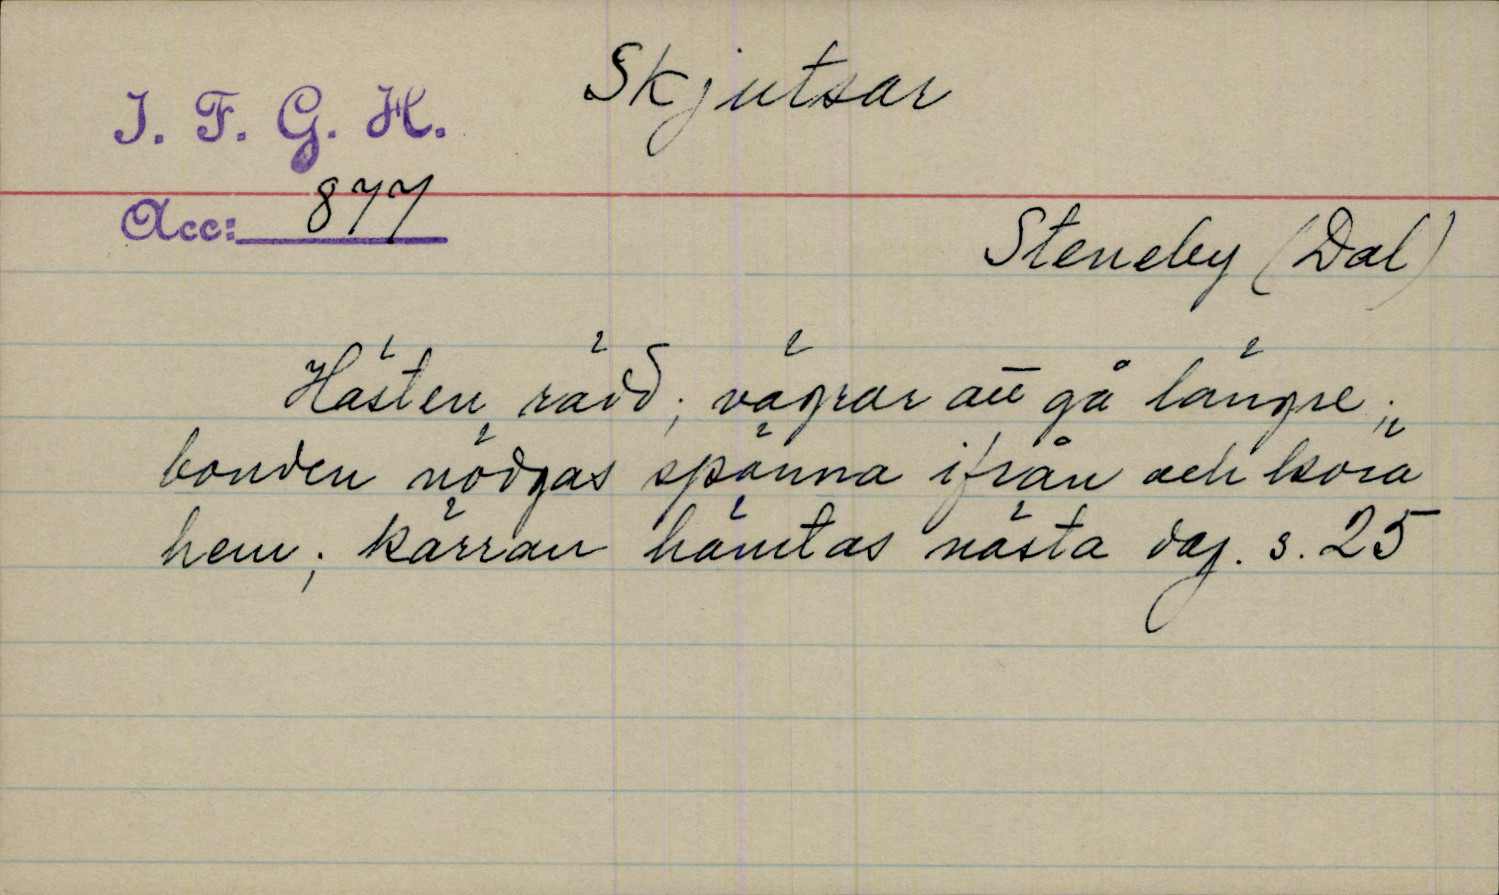 Skjutsar
I. F. G. H.
Acc: 877
Steneby (Dal)
Hästen rädd; vägrar att gå längre;
bonden nödgas spänna ifrån och köra
hem; kärran hämtas nästa dag. s. 25